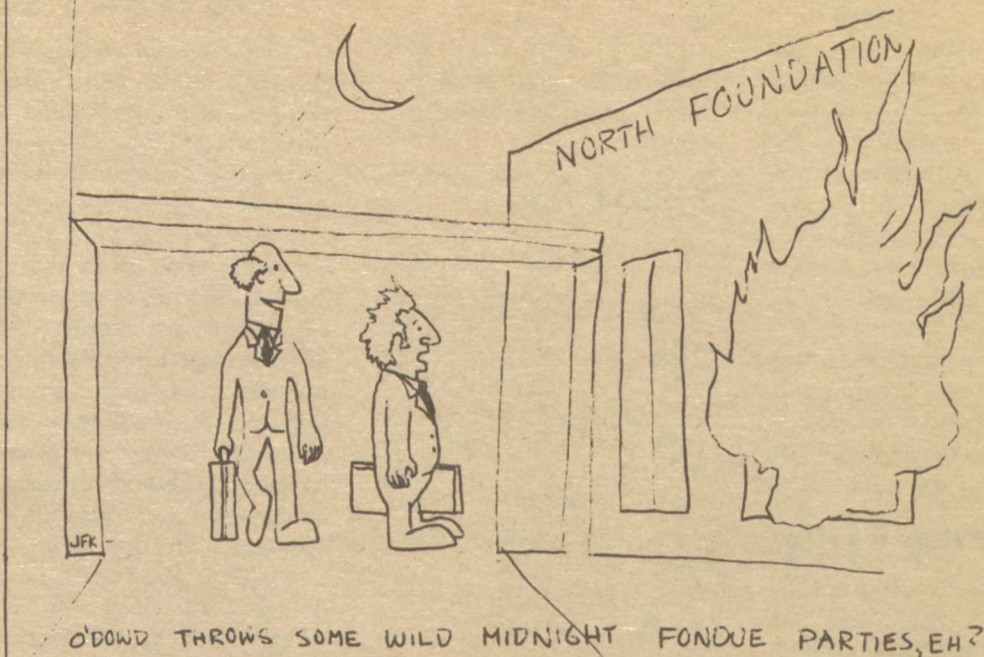 NORTH FOUNDATION
JFK
O'DOWD THROWS SOME WILD MIDNIGHT FONDUE PARTIES, EH?